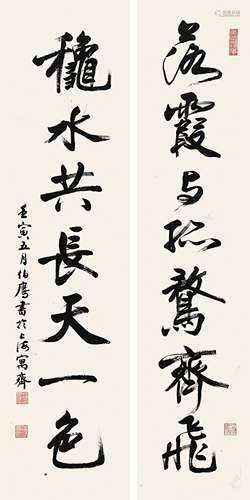 落霞与孤鶩齊飛
龝水共長天一色
壬寅五月伯鷹書於上海寓齋